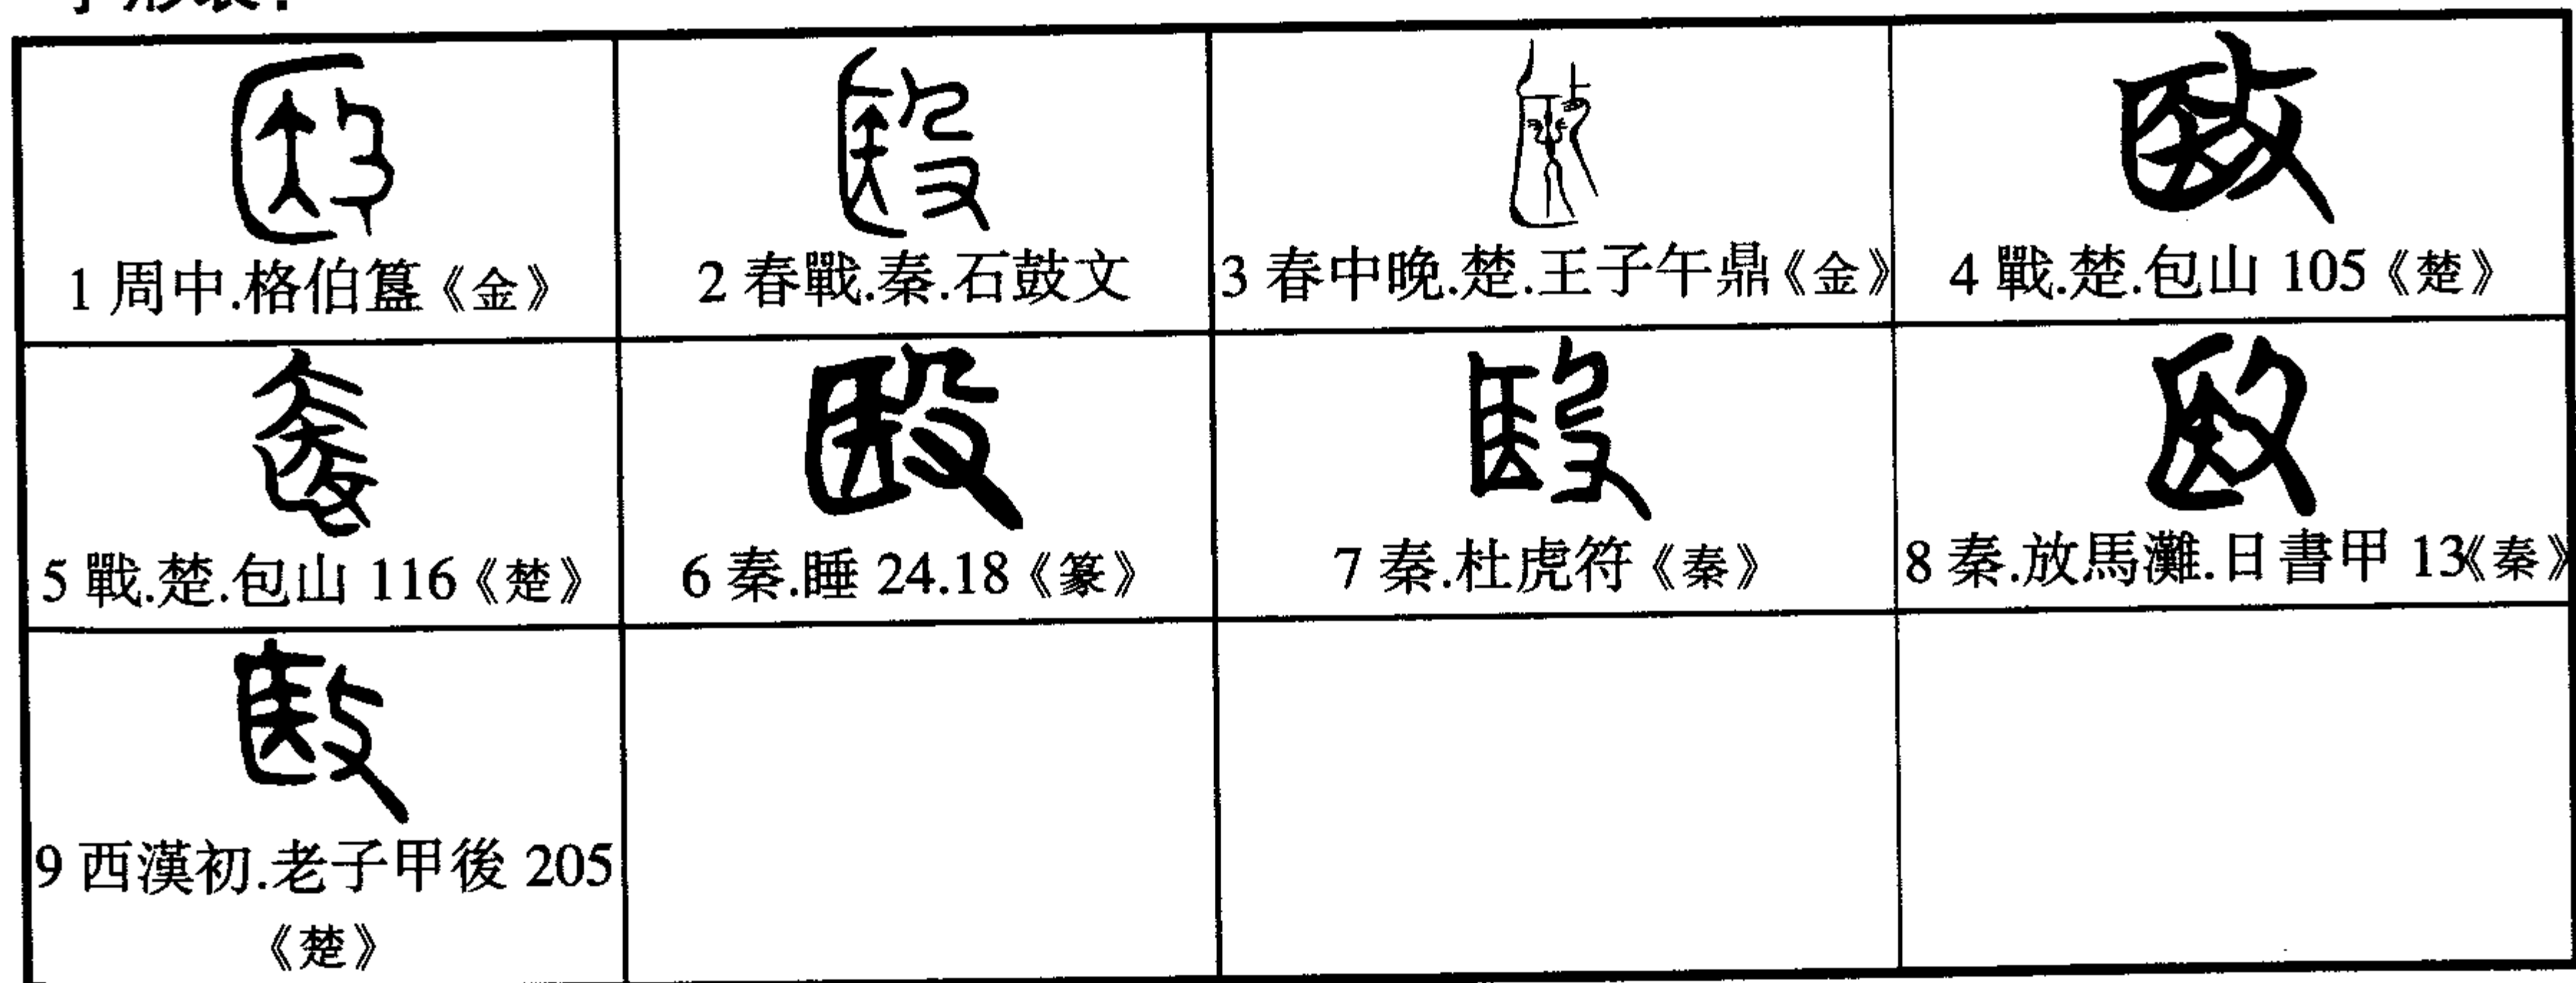 字形表：
1 周中.格伯簋《金》
2 春戰.秦.石鼓文
3 春中晚.楚.王子午鼎《金》
4 戰.楚.包山 105《楚》
5 戰.楚.包山 116《楚》
6 秦.睡 24.18《篆》
7 秦.杜虎符《秦》
8 秦.放馬灘.日書甲 13《秦》
9 西漢初.老子甲後 205
《楚》